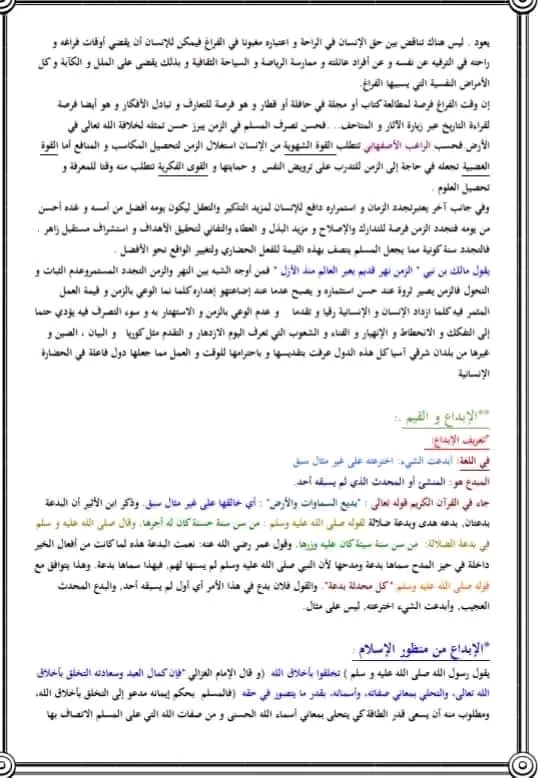 يعود . ليس هناك تناقض بين حق الإنسان في الراحة و اعتباره مغبونا في الفراغ فيمكن للإنسان أن يقضي أوقات فراغه و
راحته في الترفيه عن نفسه و عن أفراد عائلته و ممارسة الرياضة و السياحة الثقافية و بذلك يقضى على الملل و الكآبة و كل
الأمراض النفسية التي يسببها الفراغ.
إن وقت الفراغ فرصة لمطالعة كتاب أو مجلة في حافلة أو قطار و هو فرصة للتعارف و تبادل الأفكار و هو أيضا فرصة
لقراءة التاريخ عبر زيارة الآثار و المتاحف.. .فحسن تصرف المسلم في الزمن يبرز حسن تمثله لخلافة الله تعالى في
الأرض.فحسب الراغب الأصفهاني تتطلب القوة الشهوية من الإنسان استغلال الزمن لتحصيل المكاسب و المنافع أما القوة
الغضبية تجعله في حاجة إلى الزمن للتدرب على ترويض النفس و حمايتها و القوى الفكرية تتطلب منه وقتا للمعرفة و
تحصيل العلوم .
وفي جانب آخر يعتبرتجدد الزمان و استمراره دافع للإنسان لمزيد التذكير والتعقل ليكون يومه أفضل من أمسه و غده أحسن
من يومه فتجدد الزمن فرصة للتدارك والإصلاح و مزيد البذل و العطاء والتفاني لتحقيق الأهداف و استشراف مستقبل زاهر .
فالتجدد سنة كونية مما يجعل المسلم يتصف بهذه القيمة للفعل الحضاري ولتغيير الواقع نحو الأفضل .
يقول مالك بن نبي " الزمن نهر قديم يعبر العالم منذ الأزل " فمن أوجه الشبه بين النهر والزمن التجدد المستمروعدم الثبات و
التحول فالزمن يصير ثروة عند حسن استثماره و يصبح عدما عند إضاعتهو إهداره كلما نما الوعي بالزمن و قيمة العمل
المثمر فيه كلما ازداد الإنسان و الإنسانية رقيا و تقدما و عدم الوعي بالزمن و الاستهتار به و سوء التصرف فيه يؤدي حتما
إلى التفكك و الانحطاط و الإنهيار و الفناء و الشعوب التي تعرف اليوم الازدهار و التقدم مثل كوريا و اليبان ، الصين و
غيرها من بلدان شرقي آسيا كل هذه الدول عرفت بتقديسها و باحترامها للوقت و العمل مما جعلها دول فاعلة في الحضارة
الإنسانية
**الإبداع و القيم .:
*تعريف الإبداع:
في اللغة: أبدعت الشيء: اخترعته على غير مثال سبق
المبدع هو: المنشئ أو المحدث الذي لم يسبقه أحد.
جاء في القرآن الكريم قوله تعالى : "بديع السماوات والأرض" : أي خالقها على غير مثال سبق. وذكر ابن الأثير أن البدعة
بدعتان، بدعه هدى وبدعة ضلالة لقوله صلى الله عليه وسلم : من سن سنة حسنة كان له أجرها. وقال صلى الله عليه و سلم
في بدعة الضلالة: من سن سنة سيئة كان عليه وزرها. وقول عمر رضي الله عنه: نعمت البدعة هذه لما كانت من أفعال الخير
داخلة في حيز المدح سماها بدعة ومدحها لأن النبي صلى الله عليه وسلم لم يسنها لهم، فبهذا سماها بدعة. وهذا يتوافق مع
قوله صلى الله عليه وسلم "كل محدثة بدعة". والقول فلان بدع في هذا الأمر أي أول لم يسبقه أحد، والبدع المحدث
العجيب، وأبدعت الشيء اخترعته، ليس على مثال.
*الإبداع من منظور الإسلام :
يقول رسول الله صلى الله عليه و سلم ) تخلقوا بأخلاق الله (و قال الإمام الغزالي "فإن كمال العبد وسعادته التخلق بأخلاق
الله تعالى، والتحلي بمعاني صفاته، وأسمائه، بقدر ما يتصور في حقه (فالمسلم بحكم إيمانه مدعو إلى التخلق بأخلاق الله،
ومطلوب منه أن يسعى قدر الطاقة كي يتحلى بمعاني أسماء الله الحسنى و من صفات الله التي على المسلم الاتصاف بها